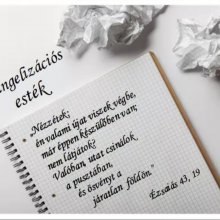 ngelizációs
esték
"Nézzétek:
én valami újat viszek végbe,
már éppen készülőben van;
nem látjátok?
Valóban, utat csinálok
a pusztában,
és ösvényt a
járatlan földön."
Ézsaiás 43, 19